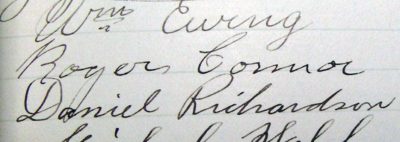 Wm Ewing
Rogers Connor
Daniel Richardson